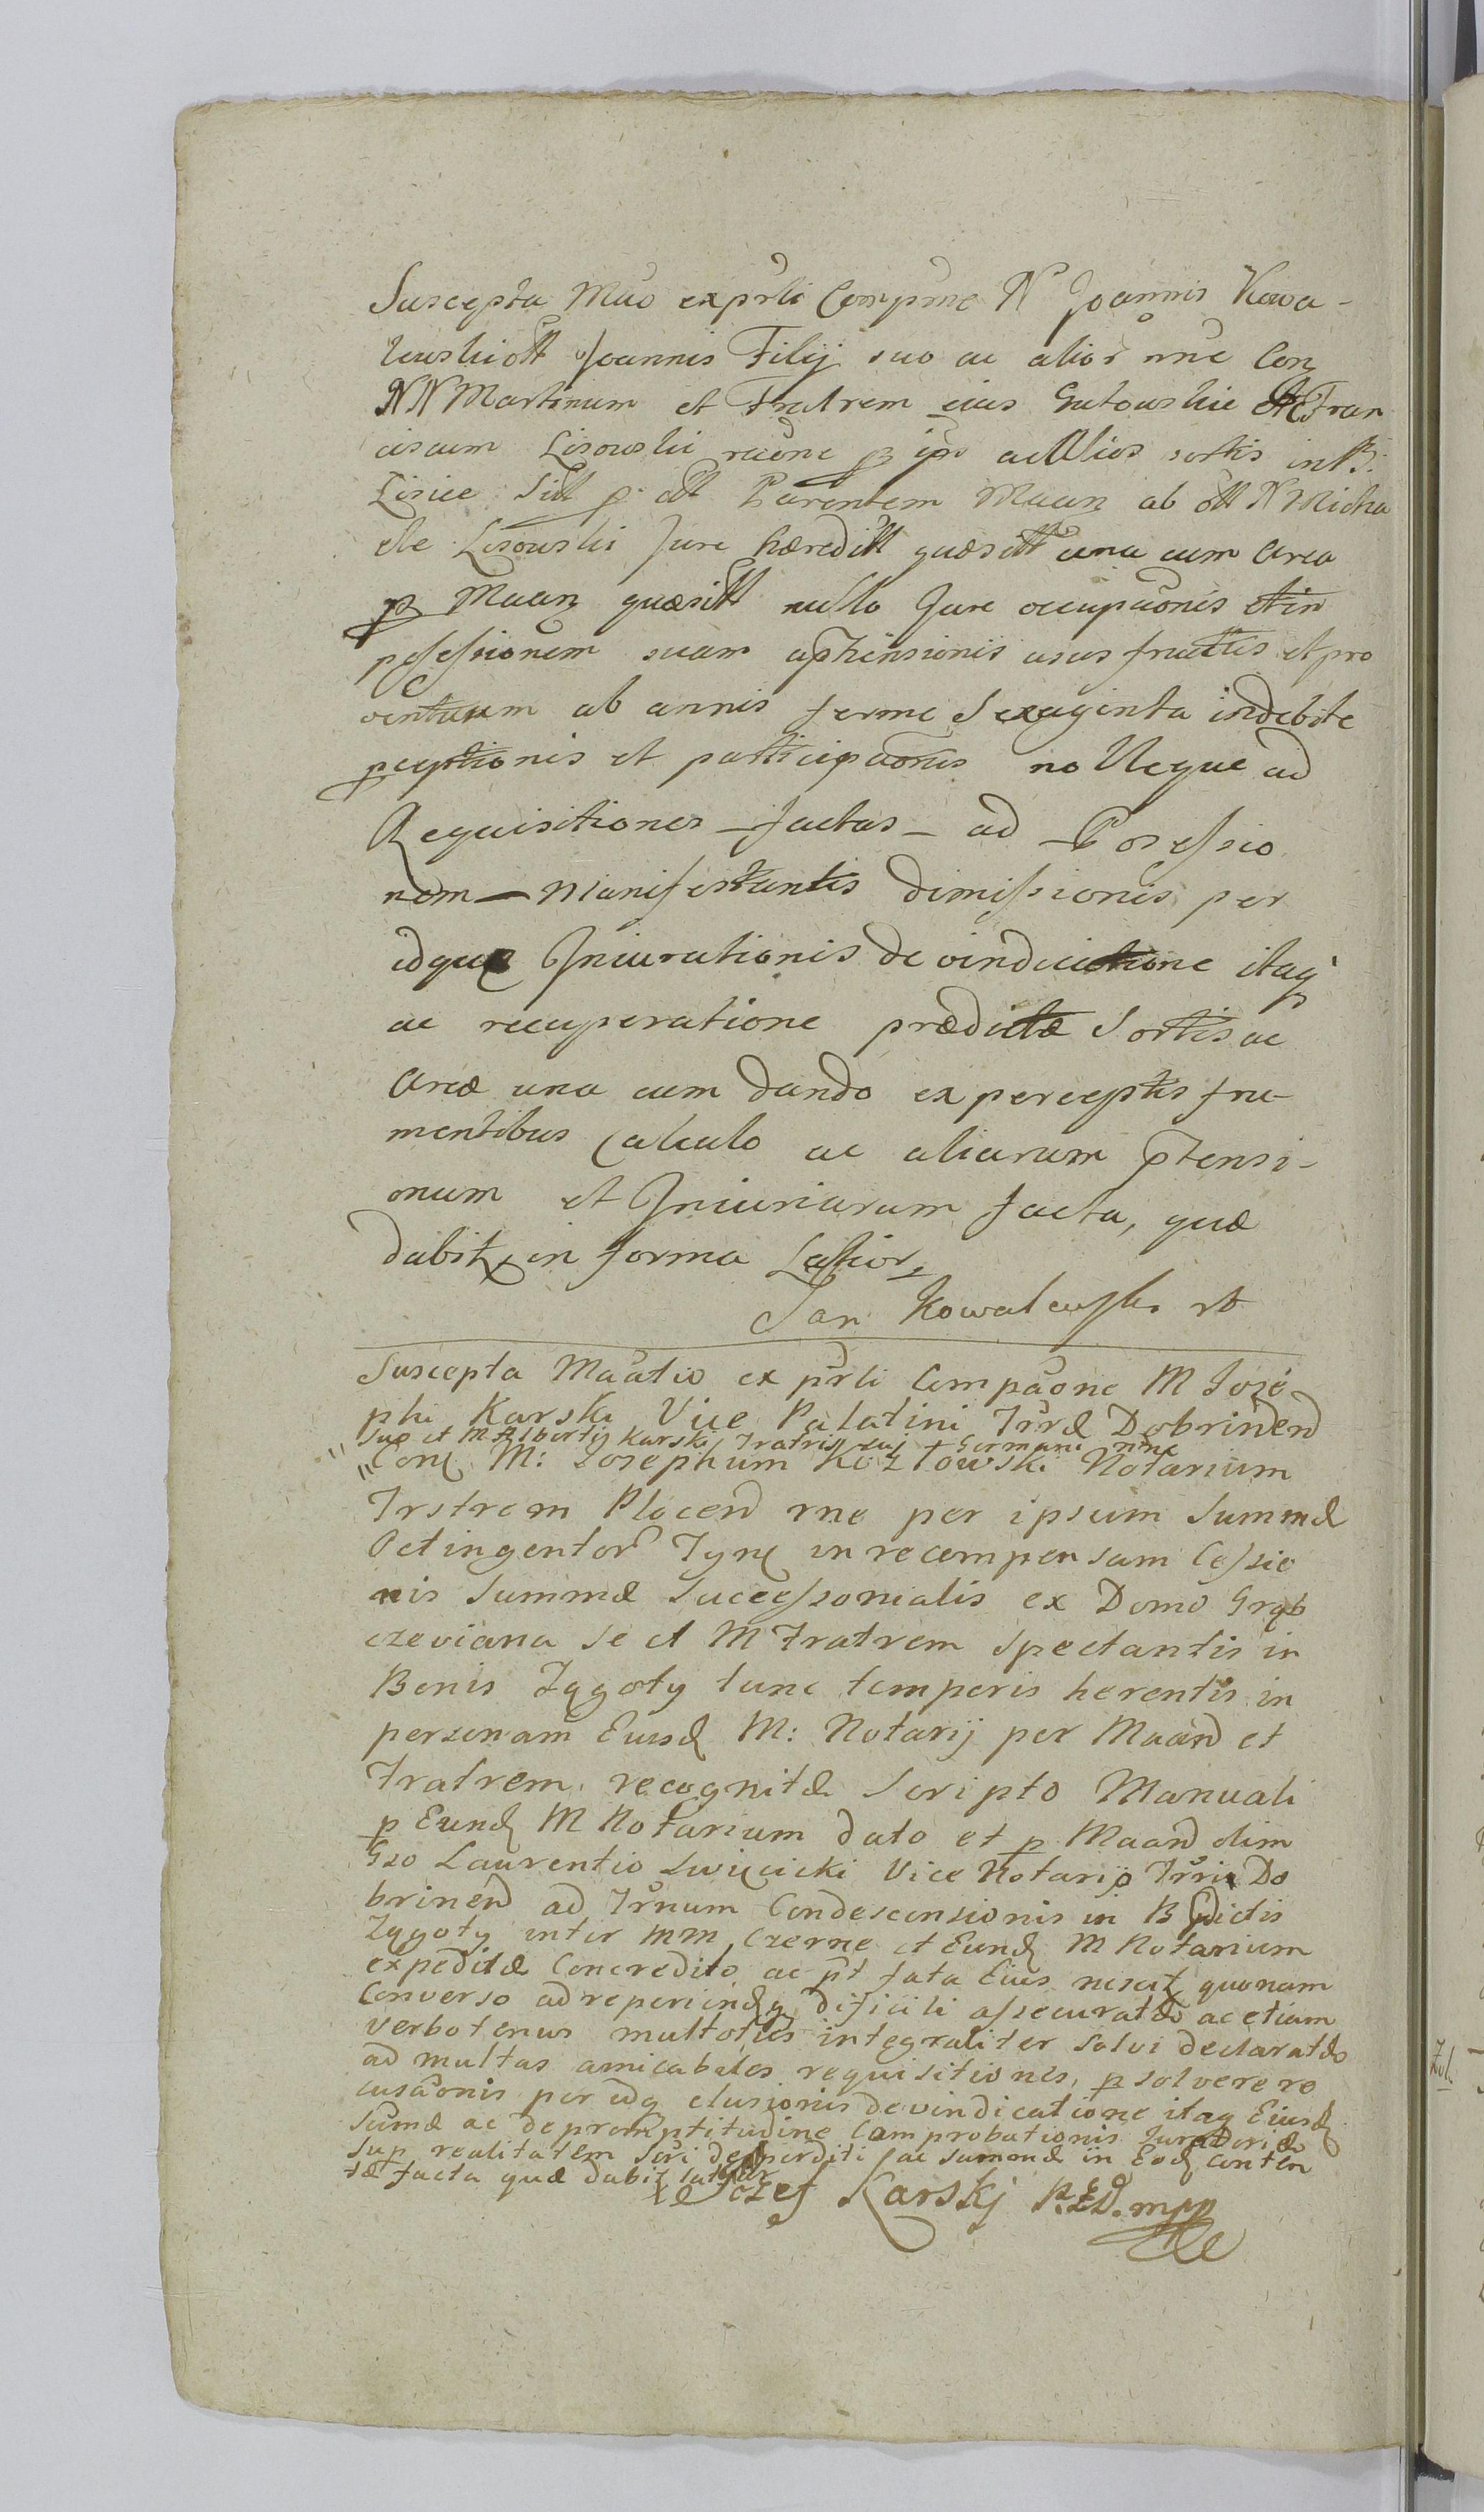 Suscepta Mãõ ex prli Comprne N Joannis Kowa-
lewski ott Joannis Filij suo ac alior nne Con
NN Martinum et Fratrem eius Gutowskie et Fran
ciscum Lisowski raõne p ipõ ac alios sortis in B:
Lisice Sitt p att Parentem Maan ab ott N Micha
ele Lisowski Jure hæreditt quæsitt una cum area
p Maan quæsitt nullo Jure occupaõnis et in
possessionem suam aphensionis usus fructus et pro
ventuum ab annis ferme Sexaginta indebite
pceptionis et participaõnis no Neque ad
Requisitiones factas ad Possessio
nem Manifestantis dimissionis per
idque Iniurationis de vindicatione itaq
ac recuperatione prædictæ Sortis ac
areæ una cum dando ex perceptis fru-
mentibus Calculo ac aliarum ptensi-
onum et Iniuriarum facta, quæ
dabit in forma Latior
Jan Kowalewski
Suscepta Maatio ex prli Compaõne M Jose
phi Karski Vice Palatini Trræ Dobrinen
suo et M Alberty Karski Fratris sui Germani nne
Con M: Josephum Kozłowski Notarium
Trstrem Plocen rne per ipsum Summæ
Octingentor Tyn in recompensam Cessio
nis Summæ Successonialis ex Domo Grąb
czeviana se et M Fratrem Spectantis in
Bonis Zągoty tunc temperis herentis in
personam Eiusd M: Notarij per Maan et
Fratrem recognitæ Scripto Manuali
p Eund M Notarium dato et p Maan olim
Gso Laurentio Święcicki Vice Notario Trris Do
brinen ad Trnum Condescensionis in B pdictis
Zągoty inter MM Czerne et Eund M Notarium
expeditæ Concredito ac pt fata Eius nescit quonam
Converso ad reperiend dificili assecuratæ ac etiam
verbotenus multoties integraliter solvi declaratæ
ad multas amicabiles requisitiones, p solvere re
cusaõnis per idq elusionis de vindicatione itaq Eiusd
Sumæ ac de promptitudine Comprobationis Juratoriæ
sup realitatem Scri deperditi ac summæ in Eod conten
tæ facta quæ dabit latior
Jozef Karskj mpp